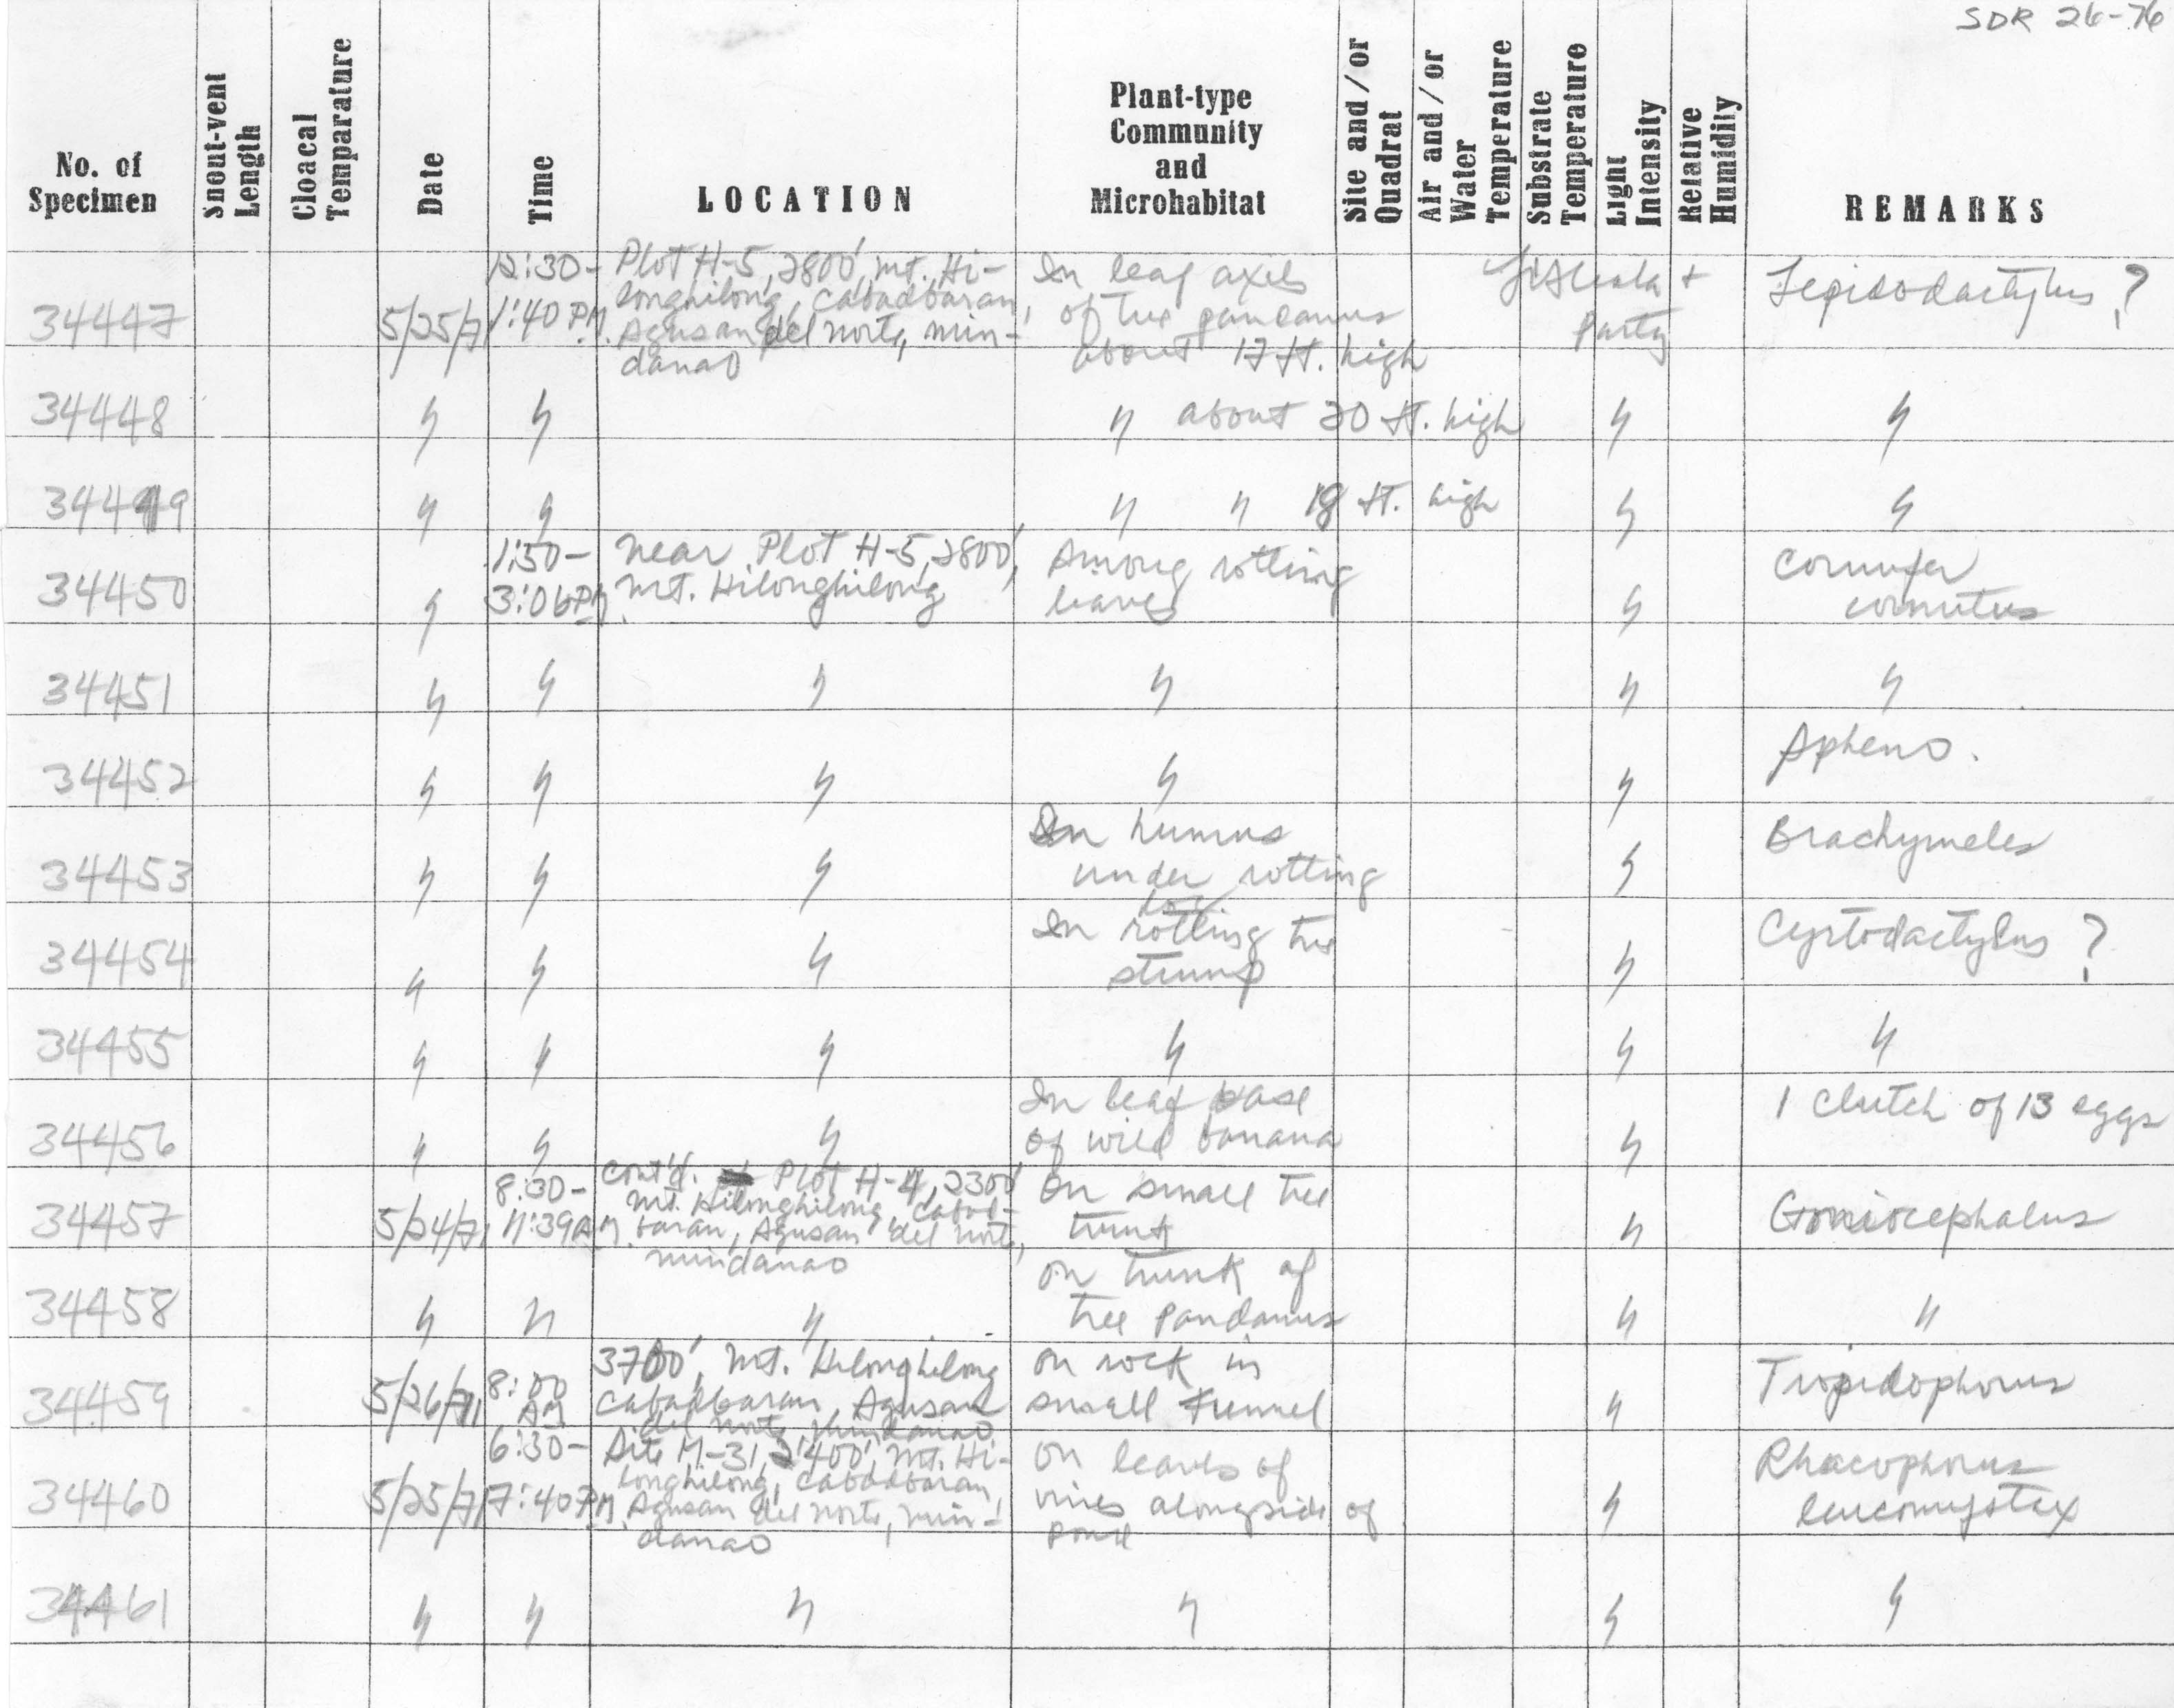 SDR 26-76
No. of Specimen
Snout-vent Length
Cloacal Temparature
Date
Time
LOCATION
Plant-type Community and Microhabitat
Site and/or Quadrat
Air and/or Water Temperature
Substrate Temperature
Light Intensity
Relative Humidity
REMARKS
34447 5/25/71 12:30- 1:40 PM. Plot H-5, 2800', Mt. Hi-
longhilong, Cabadbaran,
Agusan del Norte, Min-
danao
In leaf axels
of tree pandanus
about 17 ft. high
+ Party
Lepidodactylus ?
34448 " " " about 20 ft. high " "
34449 " " " " 18 ft. high " "
34450 " 1:50- 3:06 PM. Near Plot H-5, 2800',
Mt. Hilonghilong
Among rotting
leaves
"
Cornufer
cornutus
34451 " " " " " "
34452 " " " " " Spheno.
34453 " " "
In humus
under rotting
log
"
Brachymeles
34454 " " "
In rotting tree
stump
"
Cyrtodactylus ?
34455 " " " " " "
34456 " " "
In leaf base
of wild banana
"
1 clutch of 13 eggs
34457 5/24/71 8:30- 11:39 AM. Cont'd. Plot H-4, 2300'
Mt. Hilonghilong, Cabad-
baran, Agusan del Norte,
Mindanao
On small tree
trunk
"
Goniocephalus
34458 " " "
On trunk of
tree pandanus
"
"
34459 5/26/71 8:00 AM 3700', Mt. Hilonghilong
Cabadbaran, Agusan
del Norte, Mindanao
On rock in
small tunnel
"
Tropidophorus
34460 5/25/71 6:30- 7:40 PM. Site M-31, 2400', Mt. Hi-
longhilong, Cabadbaran,
Agusan del Norte, Min-
danao
On leaves of
vines alongside of
pond
"
Rhacophorus
leucomystax
34461 " " " " " "